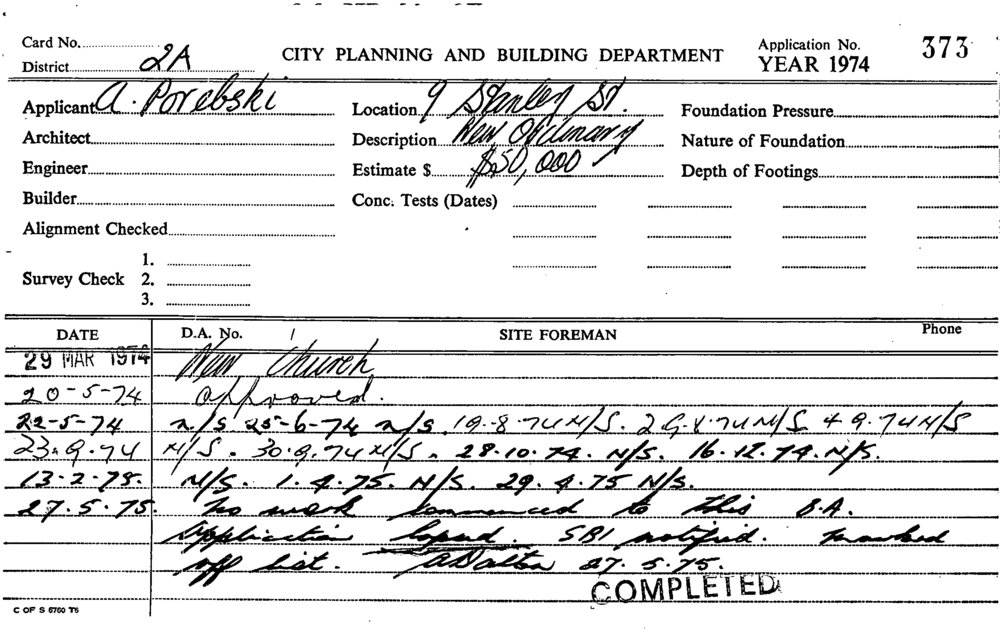 Card No.
District 2A
CITY PLANNING AND BUILDING DEPARTMENT
Application No. 373
YEAR 1974
Applicant A. Porebski
Location 9 Stanley St.
Foundation Pressure
Architect
Description New Ordinary
Nature of Foundation
Engineer
Estimate $ $50,000
Depth of Footings
Builder
Conc. Tests (Dates)
Alignment Checked
Survey Check 1.
2.
3.
DATE D.A. No. / SITE FOREMAN Phone
29 MAR 1974 New Church
20-5-74 Approved.
22-5-74 N/S 25-6-74 N/S. 19-8-74 N/S. 29.8.74 N/S. 4 9.74 N/S
23.9.74 N/S. 30.9.74 N/S. 28.10.74. N/S. 16.12.74. N/S.
13-2-75. N/S. 1.4.75. N/S. 29.4.75 N/S.
27.5.75. No work commenced to this B.A.
Application lapsed. SBI notified. marked
off list. A Dalton 27.5.75.
COMPLETED
C OF S 6760 T6